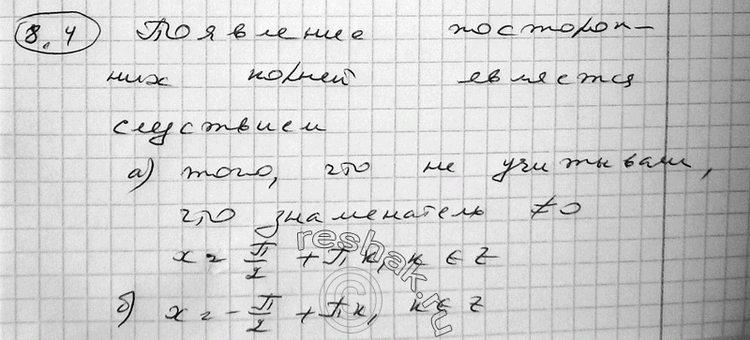 8.4 Появление посторон-
них корней является
следствием
а) того, что не учитывали,
что знаменатель ≠0
x = π/2 + πk, k ∈ Z
б) x = - π/2 + πk, k ∈ Z
reshak.ru
©